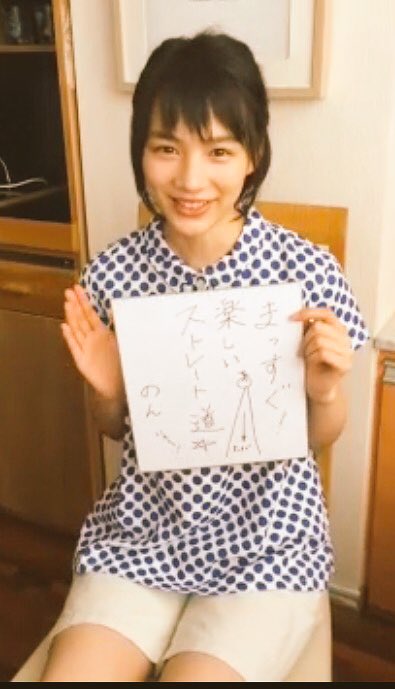 まっすぐ!
楽しい
ストレート道☆
のん